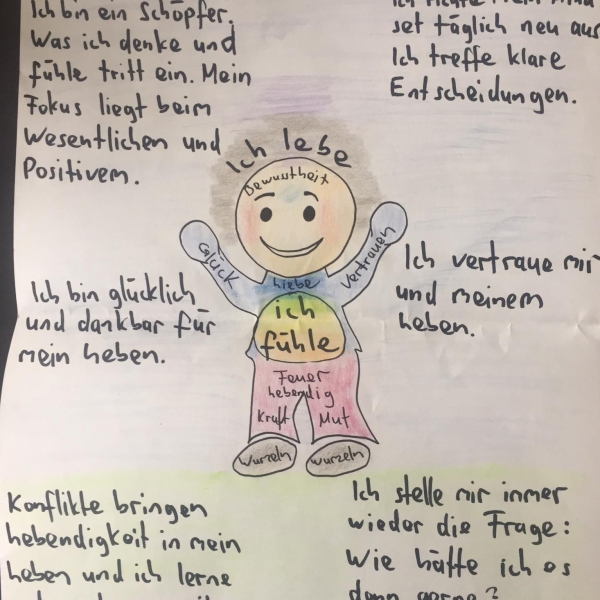 Ich bin ein Schöpfer.
Was ich denke und
fühle tritt ein. Mein
Fokus liegt beim
Wesentlichen und
Positivem.
Ich richte mein
set täglich neu aus
Ich treffe klare
Entscheidungen.
Ich lebe
Bewusstheit
Glück
Vertrauen
Liebe
ich
fühle
Ich bin glücklich
und dankbar für
mein Leben.
Ich vertraue mir
und meinem
Leben.
Feuer
Lebendig
Kraft Mut
Wurzeln Wurzeln
Konflikte bringen
Lebendigkeit in mein
Leben und ich lerne
Ich stelle mir immer
wieder die Frage:
Wie hätte ich es
dann gerne?